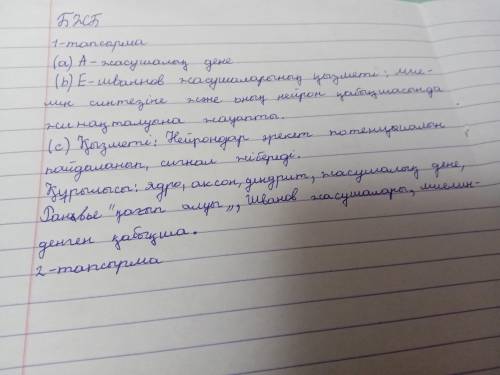 БЖБ
1-тапсырма
(a) А-жасушалық дене
(b) Е-шваннов жасушаларының қызметі: мие-
лин синтезіне және оның нейрон қабықшасында
жинақталуына жауапты.
(c) Қызметі: Нейрондар әрекет потенциалын
пайдаланып, сигнал жібереді.
Құрылысы: ядро, аксон, дендрит, жасушалық дене,
Ранвье "үзіліп қалуы", Шванов жасушалары, миелин-
денген қабықша.
2-тапсырма